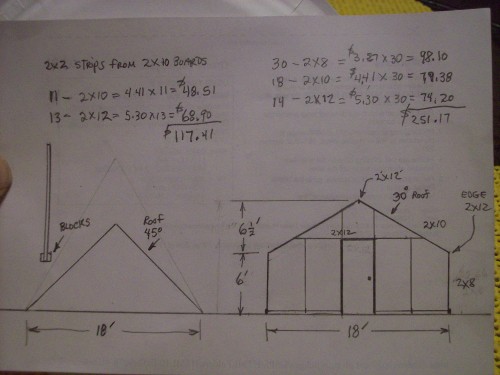 2x2 STRIPS FROM 2x10 BOARDS
11 – 2x10 = 4.41 x 11 = $48.51
13 – 2x12 = 5.30 x 13 = $68.90
$117.41
30 – 2x8 = $3.27 x 30 = 98.10
18 – 2x10 = $4.41 x 30 = 79.38
14 – 2x12 = $5.30 x 30 = 74.20
$251.17
BLOCKS
ROOF
45°
18'
2"x12"
30° ROOF
EDGE
2x12
2x12
2x10
6½'
6'
2x8
18'